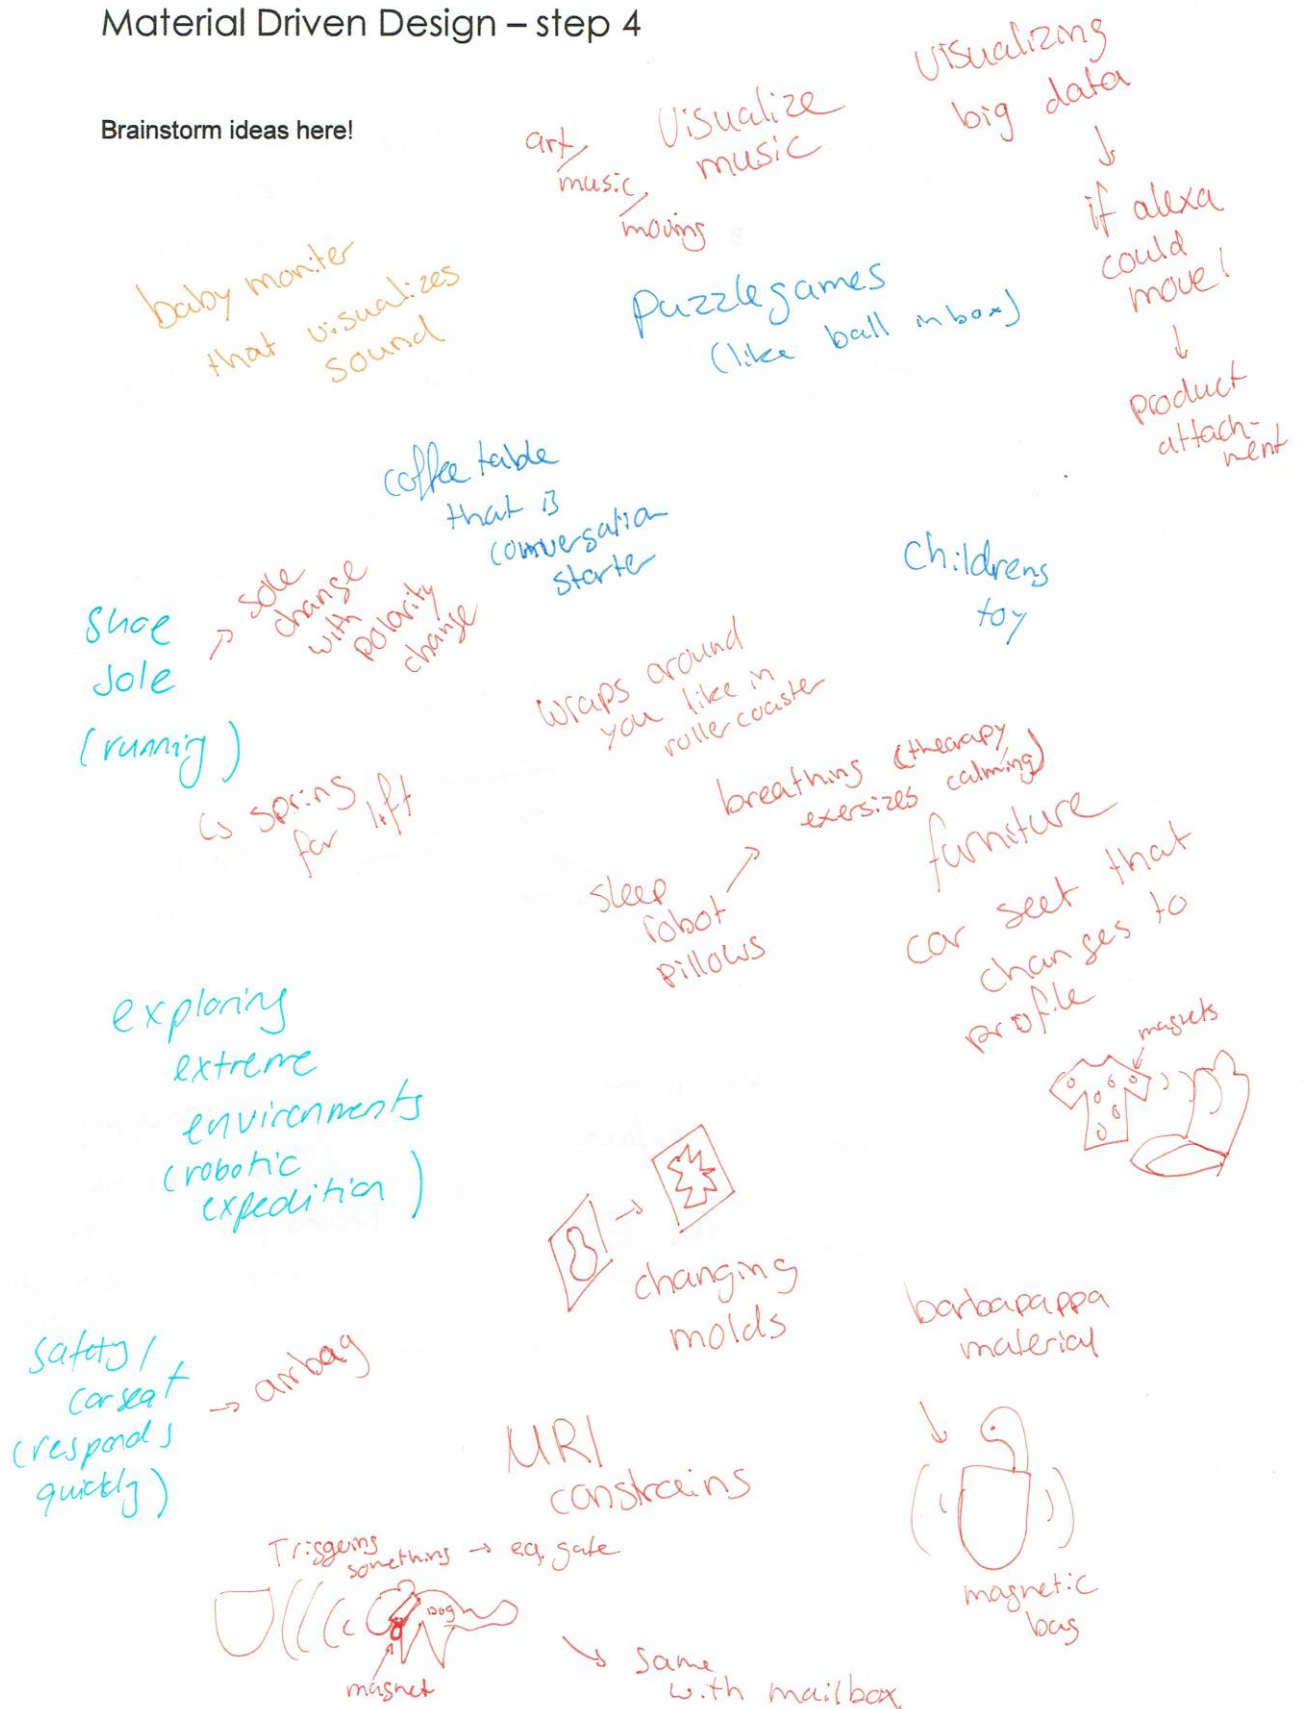 Material Driven Design – step 4
Brainstorm ideas here!
art/
music/
moving
Visualize
music
Visualizing
big data
↓
if alexa
could
move!
↓
product
attach-
ment
baby moniter
that visualizes
sound
Puzzlegames
(like ball in box)
coffee table
that is
conversation
starter
Childrens
toy
Shoe
Sole
(running)
→ sole
change
with
polarity
change
↳ spring
for lift
wraps around
you like in
rollercoaster
breathing (therapy
exersizes calming)
sleep
robot
pillows
furniture
car seet that
changes to
profile
magnets
exploring
extreme
environments
(robotic
expedition)
changing
molds
barbapappa
material
safety/
carseat
(responds
quickly)
→ airbag
MRI
constrains
magnetic
bag
Triggeing
something → e.g. gate
Dog
magnet
same
with mailbox